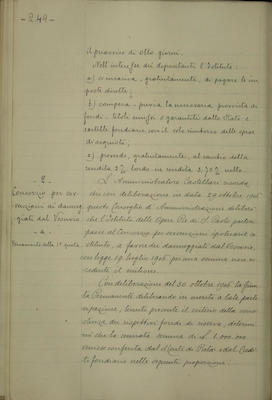 - 249 -
il preavviso di otto giorni.
Nell'interesse dei depositanti l'Istituto:
a) s'incarica, gratuitamente, di pagare le im
poste dirette;
b) compera - previa la necessaria provvista di
fondi - titoli emessi o garantiti dallo Stato e
cartelle fondiarie con il solo rimborso delle spese
di acquisto;
c) provvede, gratuitamente, al cambio della
rendita 5% lordo in rendita 3,75% netto.
- 2 -
Consorzio per sov
venzioni ai danneg
giati dal Vesuvio
- a -
Versamento della 1ª quota
L'Amministratore Castellani ricorda
che con deliberazione in data 29 ottobre 1906
questo Consiglio d'Amministrazione deliberò
che l'Istituto delle Opere Pie di S. Paolo parteci
passe al Consorzio per sovvenzioni ipotecarie co
stituito, a favore dei danneggiati dal Vesuvio,
con legge 19 luglio 1906 per una somma non ec
cedente il milione.
Con deliberazione del 30 ottobre 1906 la Giun
ta Permanente deliberando in merito a tale parte
cipazione, tenuto presente il criterio della
dei rispettivi fondi di riserva, determi
nò che la somma di L. 1.000.000
venisse conferita dal Monte di Pietà e dal Credi
to fondiario nelle seguenti proporzioni: